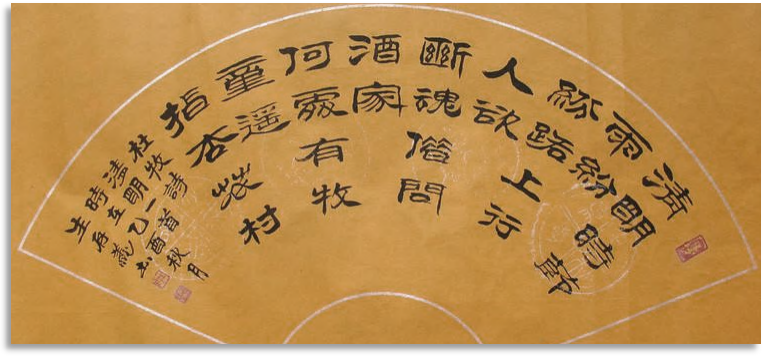 清明時節
雨紛
紛路上行
人欲
斷魂借問
酒家
何處有牧
童遥
指杏花村
杜牧詩一首
清明
時在乙酉秋月